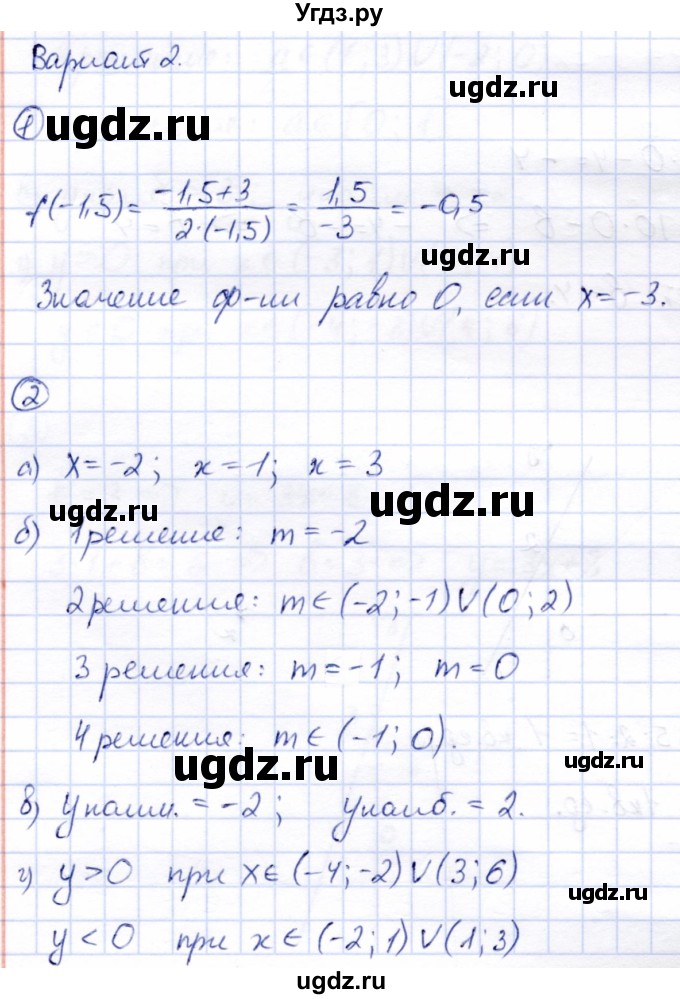 Угдз.ру
Вариант 2.
1 ugdz.ru
f(-1,5) = \frac{-1,5+3}{2·(-1,5)} = \frac{1,5}{-3} = -0,5
ugdz.ru
Значение ф-ии равно 0, если x = -3.
2
а) x = -2; x = 1; x = 3
ugdz.ru ugdz.ru
б) 1 решение: m = -2
2 решения: m ∈ (-2; -1) ∪ (0; 2)
3 решения: m = -1; m = 0
4 решения: m ∈ (-1; 0).
ugdz.ru
в) y наим. = -2; y наиб. = 2.
ugdz.ru
г) y > 0 при x ∈ (-4; -2) ∪ (3; 6)
y < 0 при x ∈ (-2; 1) ∪ (1; 3)
ugdz.ru